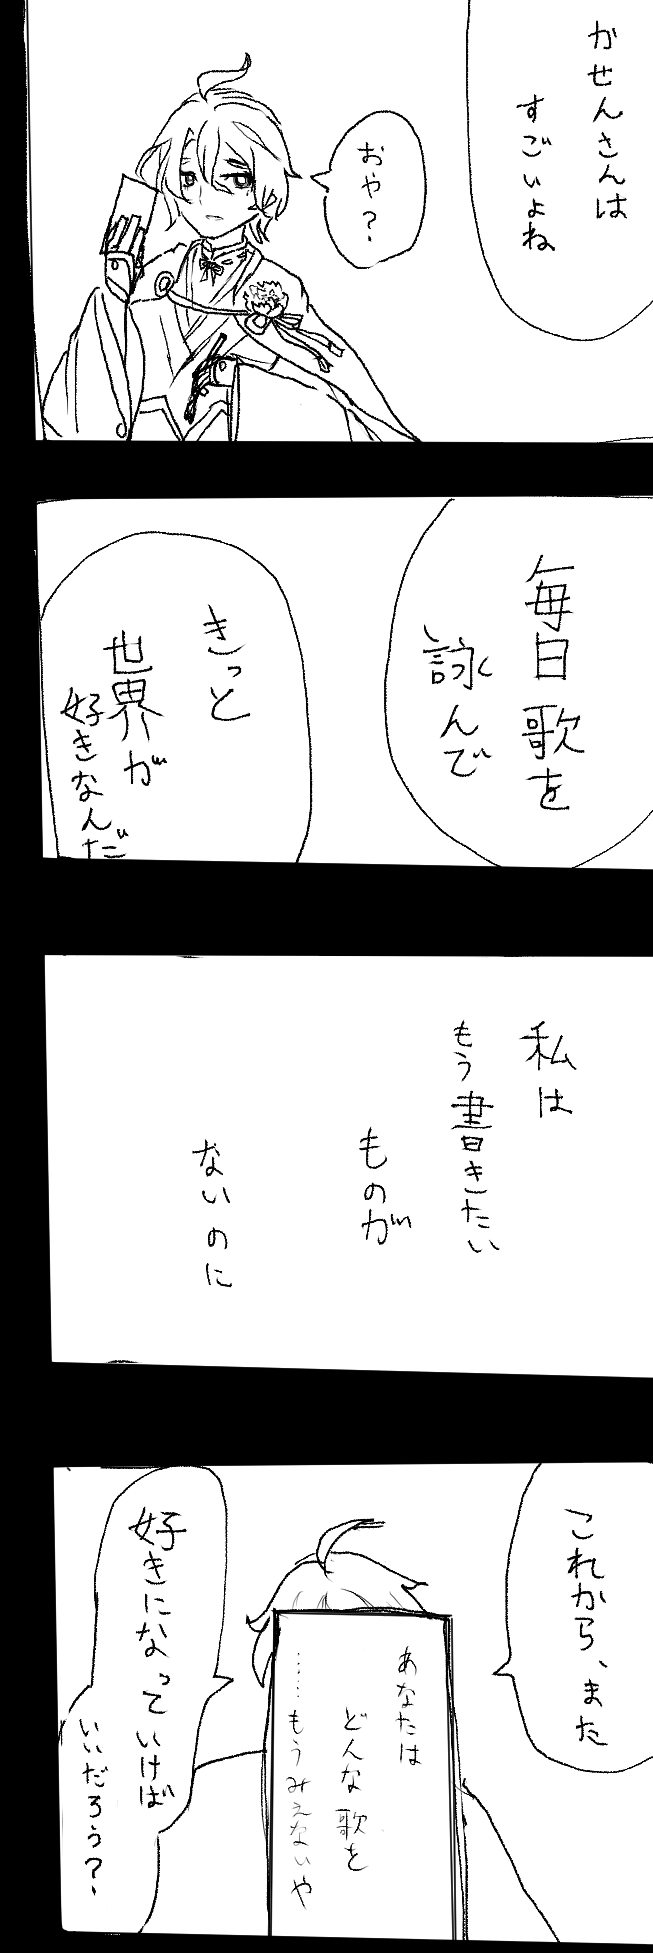 かせんさんは
すごいよね
おや？
毎日歌を
詠んで
きっと
世界が
好きなんだ
私は
もう書きたい
ものが
ないのに
これから、また
あなたは
どんな歌を
……もうみえないや
好きになっていけば
いいだろう？